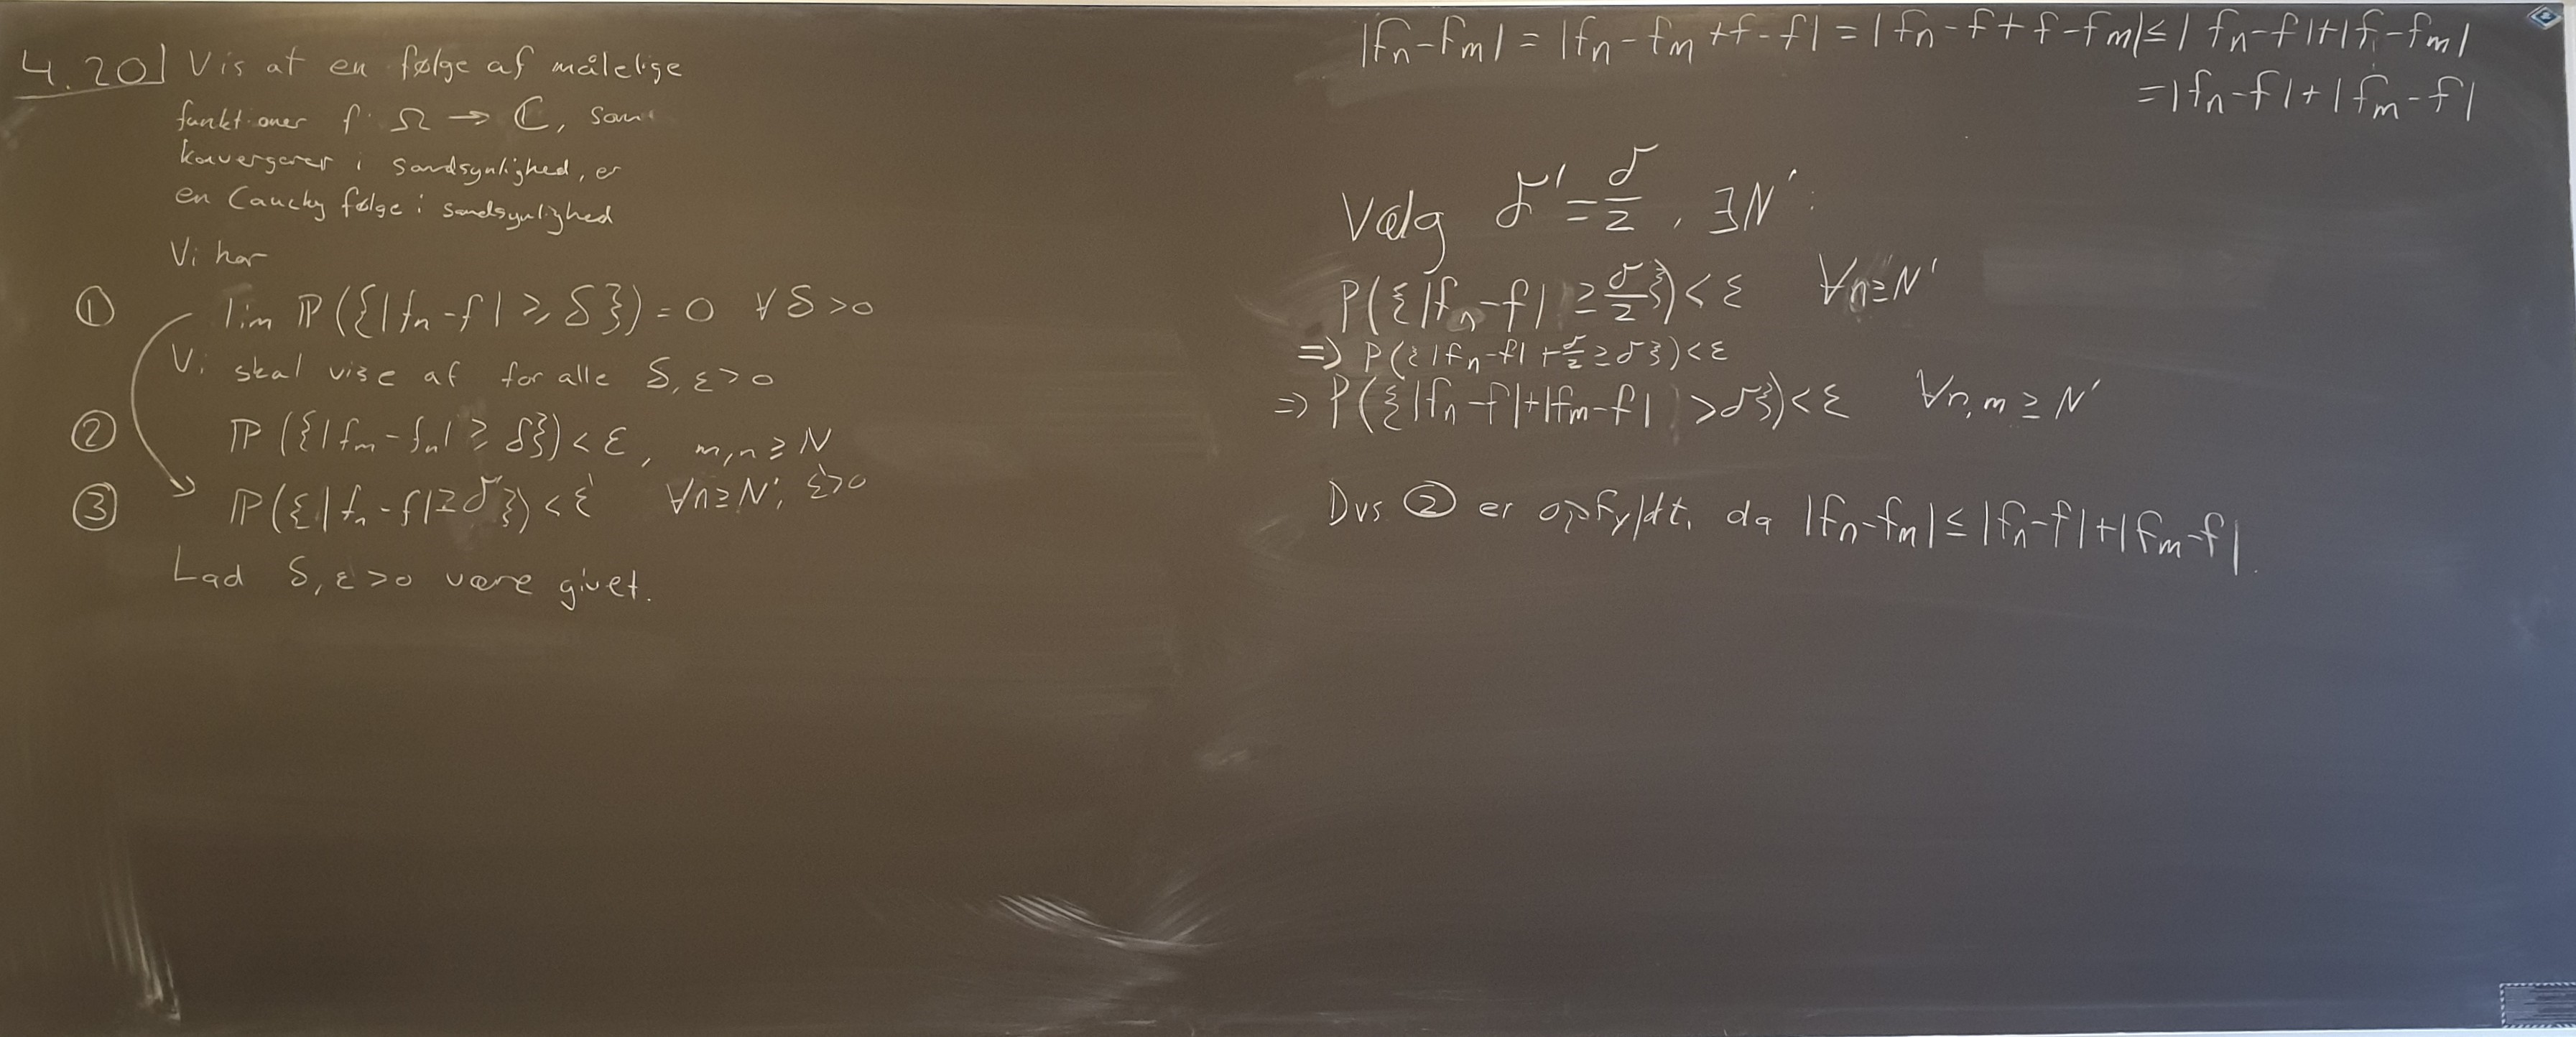 4.20] Vis at en følge af målelige
funktioner f: Ω → ℂ, som
konvergerer i sandsynlighed, er
en Cauchy følge i sandsynlighed
Vi har
① lim ℙ({|fn-f| ≥ δ}) = 0 ∀ δ > 0
Vi skal vise af for alle δ, ε > 0
② ℙ({|fm-fn| ≥ δ}) < ε, m,n ≥ N
③ ℙ({|fn-f| ≥ δ'}) < ε' ∀n ≥ N', ε' > 0
Lad δ, ε > 0 være givet.
|fn-fm| = |fn-fm+f-f| = |fn-f+f-fm| ≤ |fn-f|+|f-fm|
= |fn-f|+|fm-f|
Vælg δ' = δ/2, ∃N':
P({|fn-f| ≥ δ/2}) < ε ∀n ≥ N'
⇒ P({|fn-f|+δ/2 ≥ δ}) < ε
⇒ P({|fn-f|+|fm-f| > δ}) < ε ∀n,m ≥ N'
Dvs ② er opfyldt, da |fn-fm| ≤ |fn-f|+|fm-f|.